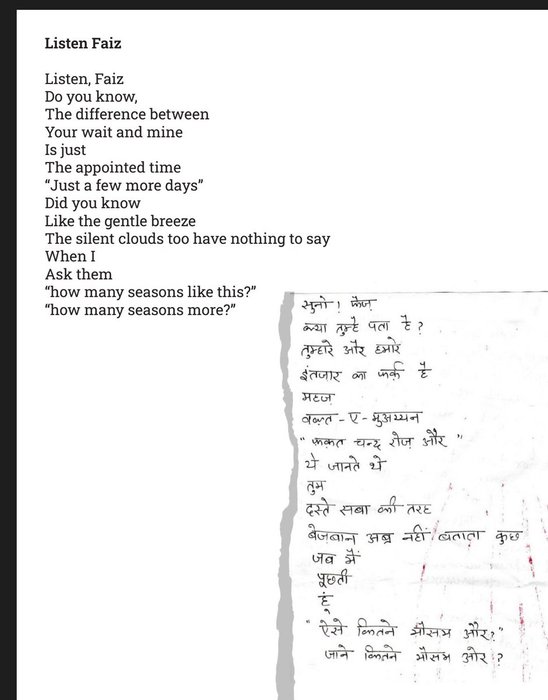 Listen Faiz
Listen, Faiz
Do you know,
The difference between
Your wait and mine
Is just
The appointed time
“Just a few more days”
Did you know
Like the gentle breeze
The silent clouds too have nothing to say
When I
Ask them
“how many seasons like this?”
“how many seasons more?”
सुनो! फ़ैज़
क्या तुम्हे पता है?
तुम्हारे और हमारे
इंतजार का फर्क है
महज़
वक़्त-ए-मुअय्यन
"फ़कत चन्द रोज़ और"
ये जानते थे
तुम
दस्ते सबा की तरह
बेजबान अब्र नहीं बताता कुछ
जब मैं
पूछती
हूं
"ऐसे कितने मौसम और?"
जाने कितने मौसम और?